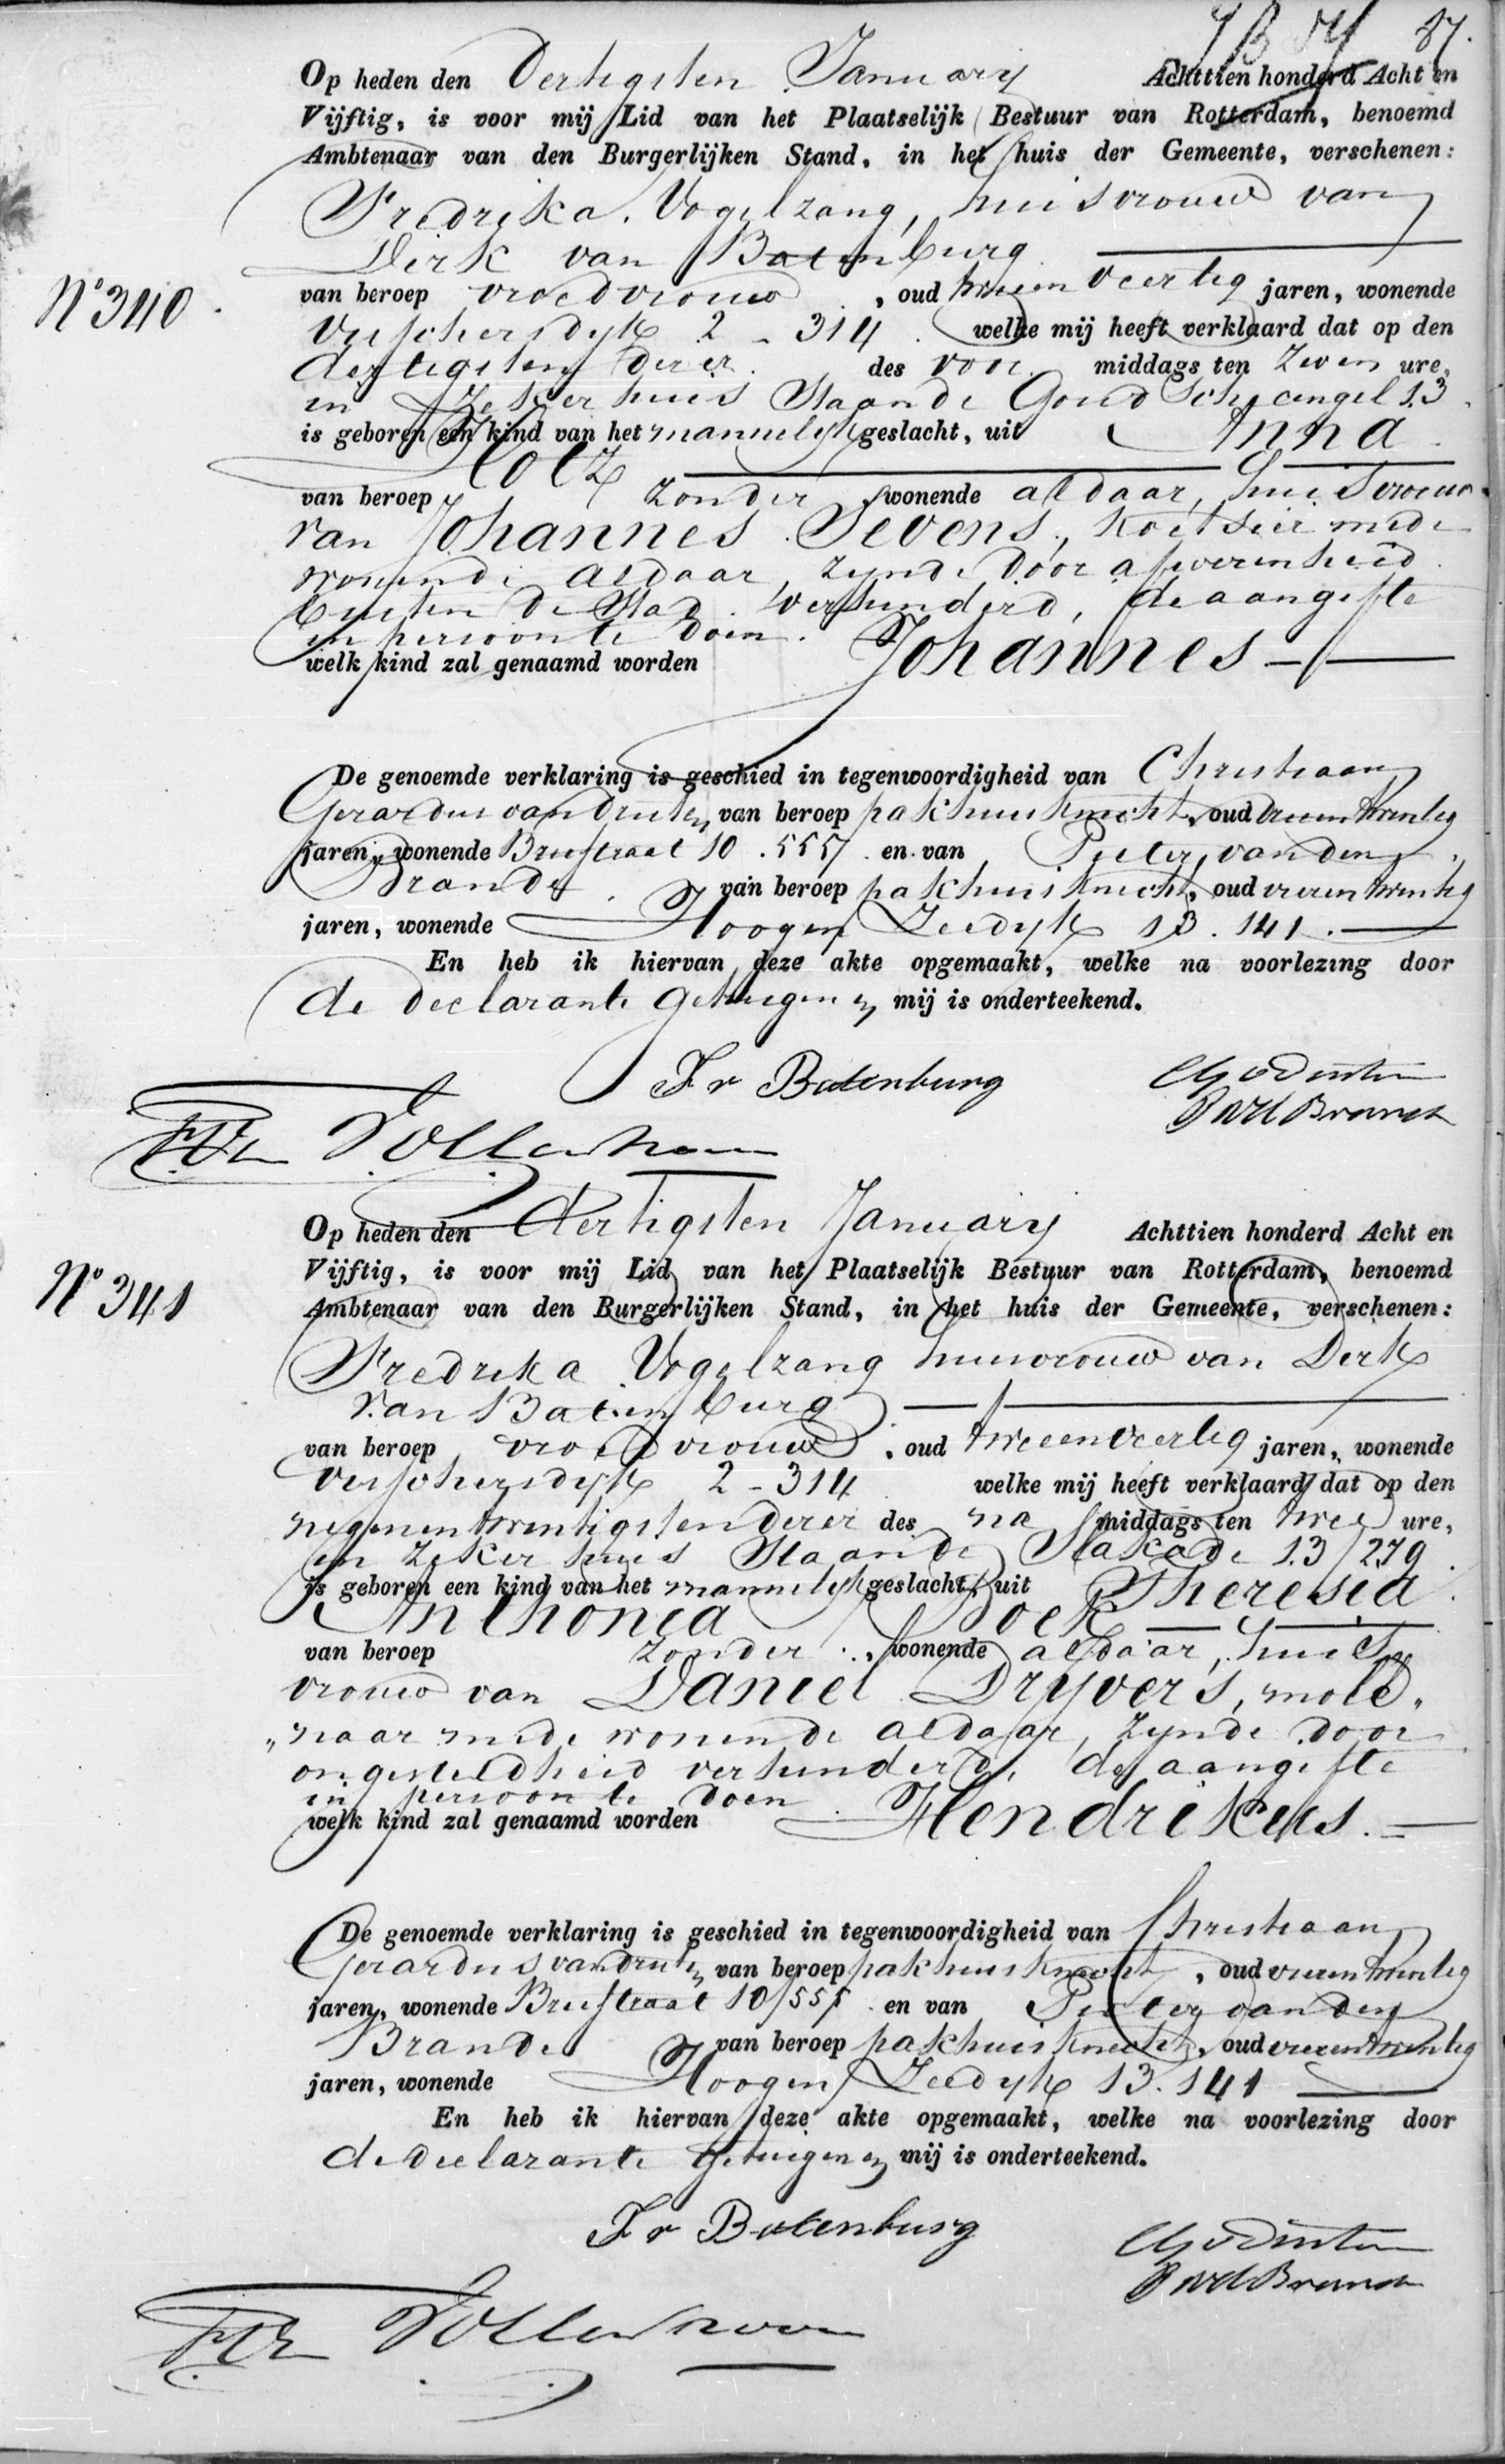 87.
Op heden den Dertigsten January Achttien honderd Acht en
Vijftig, is voor mij Lid van het Plaatselijk Bestuur van Rotterdam, benoemd
Ambtenaar van den Burgerlijken Stand, in het huis der Gemeente, verschenen:
Fredrika Vogelzang, huisvrouw van
Dirk van Batenburg
N° 340
van beroep vroedvrouw, oud tweeenveertig jaren, wonende
Visschersdyk 2 - 314 welke mij heeft verklaard dat op den
dertigsten dezer des voor middags ten zeven ure,
in zeker huis staande Goudsche cingel 13
is geboren een kind van het mannelyk geslacht, uit Anna
Holz
van beroep zonder wonende aldaar, huisvrouw
van Johannes Sevens, koetsier mede
wonende aldaar, zynde door afwezenheid
buiten de Stad verhinderd, de aangifte
in persoon te doen.
welk kind zal genaamd worden Johannes
De genoemde verklaring is geschied in tegenwoordigheid van Christiaan
Gerardus van Druten van beroep pakhuisknecht, oud vierentwintig
jaren, wonende Breestraat 10.555 en van Pieter van den
Brande van beroep pakhuisknecht, oud vierentwintig
jaren, wonende Hoogen Zeedyk 13.141.
En heb ik hiervan deze akte opgemaakt, welke na voorlezing door
de declarante getuigen en mij is onderteekend.
Fr Batenburg
P vd Brande
Op heden den dertigsten January Achttien honderd Acht en
N° 341
Vijftig, is voor mij Lid van het Plaatselijk Bestuur van Rotterdam, benoemd
Ambtenaar van den Burgerlijken Stand, in het huis der Gemeente, verschenen:
Fredrika Vogelzang huisvrouw van Dirk
van Batenburg
van beroep vroedvrouw, oud tweeenveertig jaren, wonende
Visschersdyk 2 - 314 welke mij heeft verklaard dat op den
negenentwintigsten dezer des na middags ten twee ure,
in zeker huis staande Stakade 13/279
is geboren een kind van het mannelyk geslacht, uit Theresia
Anthonia Boek
van beroep zonder, wonende aldaar, huis
vrouw van Daniel Dryvers, mole
naar mede wonende aldaar, zynde door
ongesteldheid verhinderd, de aangifte
in persoon te doen
welk kind zal genaamd worden Hendrikus.
De genoemde verklaring is geschied in tegenwoordigheid van Christiaan
Gerardus van Druten van beroep pakhuisknecht, oud vierentwintig
jaren, wonende Breestraat 10/555 en van Pieter van den
Brande van beroep pakhuisknecht, oud vierentwintig
jaren, wonende Hoogen Zeedyk 13.141
En heb ik hiervan deze akte opgemaakt, welke na voorlezing door
de declarante getuigen en mij is onderteekend.
Fr Batenburg
P vd Brande